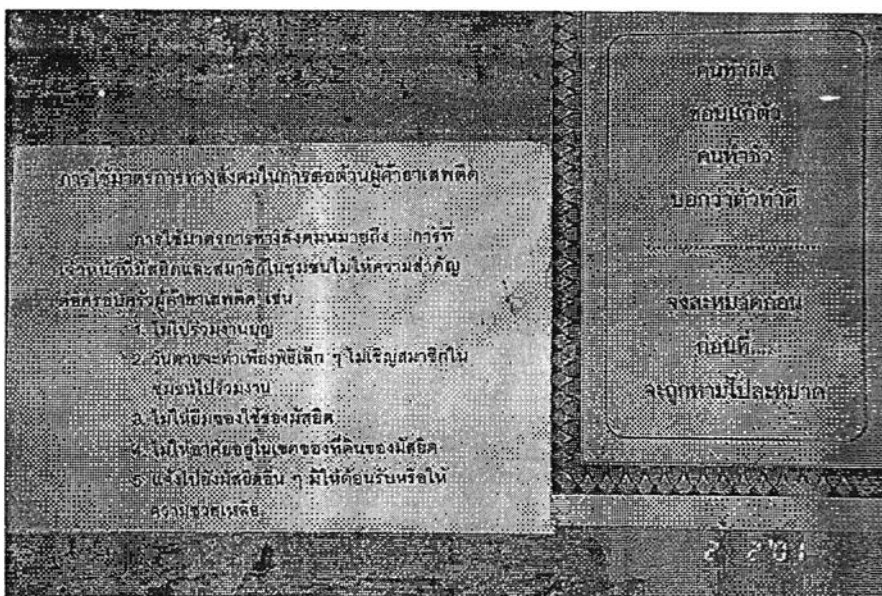 การใช้มาตรการทางสังคมในการต่อต้านผู้ค้ายาเสพติด
การใช้มาตรการทางสังคมหมายถึง การที่
เจ้าหน้าที่มัสยิดและสมาชิกในชุมชนไม่ให้ความสำคัญ
ต่อครอบครัวผู้ค้ายาเสพติด เช่น
1. ไม่ไปร่วมงานบุญ
2. วันตายจะทำเพียงพิธีเล็ก ๆ ไม่เชิญสมาชิกใน
ชุมชนไปร่วมงาน
3. ไม่ให้ยืมของใช้ของมัสยิด
4. ไม่ให้อาศัยอยู่ในเขตของที่ดินของมัสยิด
5. แจ้งไปยังมัสยิดอื่น ๆ มิให้ต้อนรับหรือให้
ความช่วยเหลือ
คนทำผิด
ชอบแก้ตัว
คนทำชั่ว
บอกว่าตัวทำดี
จงละหมาดก่อน
ก่อนที่....
จะถูกหามไปละหมาด
2 2'01